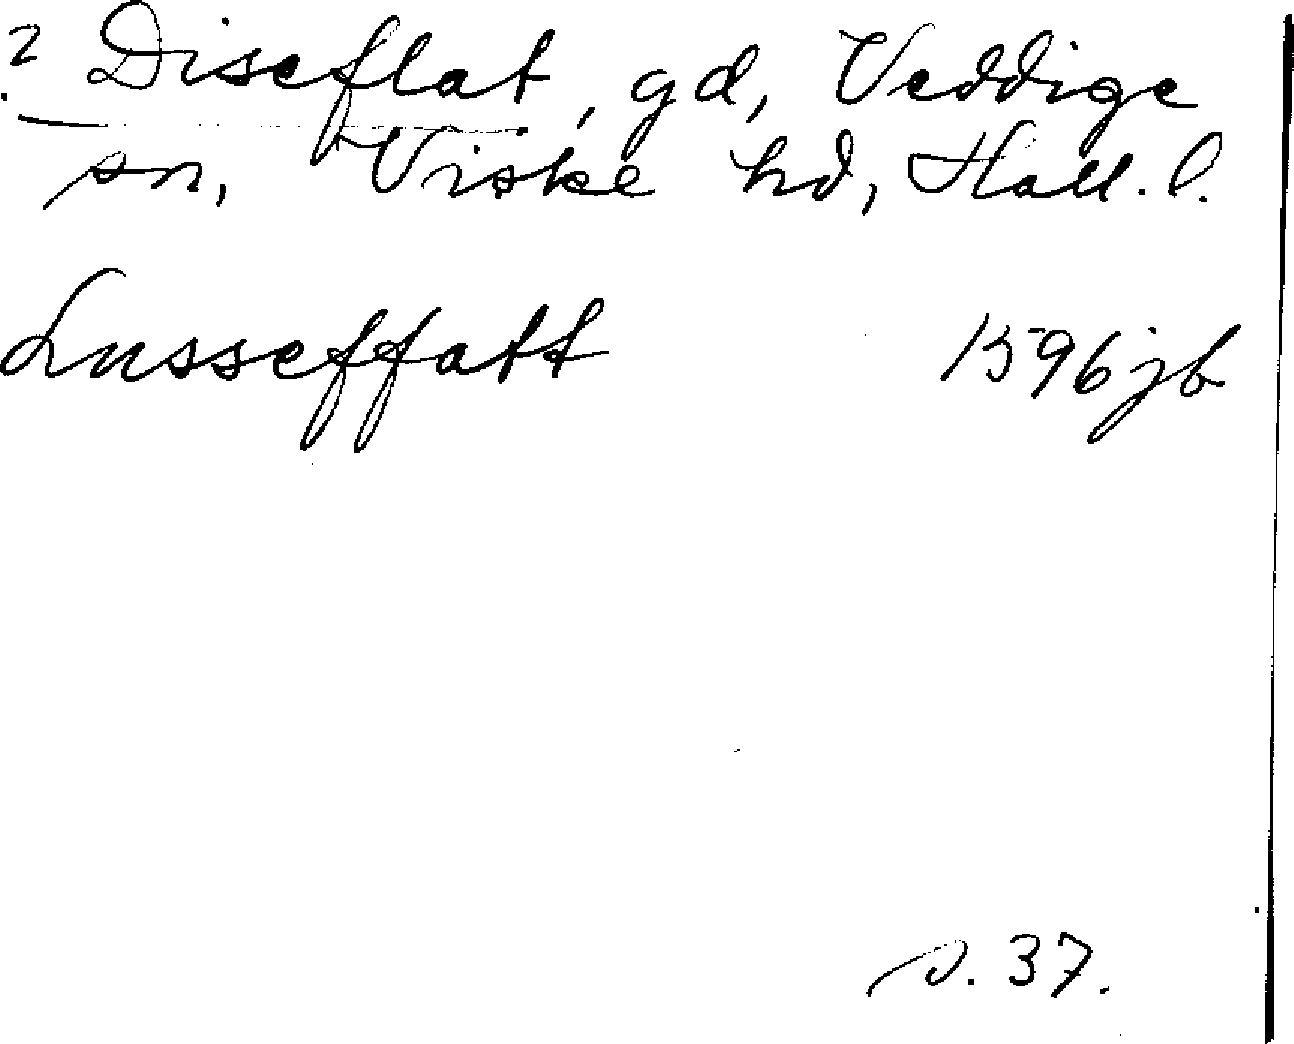 ? Diseflat, gd, Veddige
sn, Viske hd, Hall. l.
Lusseffatt 1596 jb
s. 37.